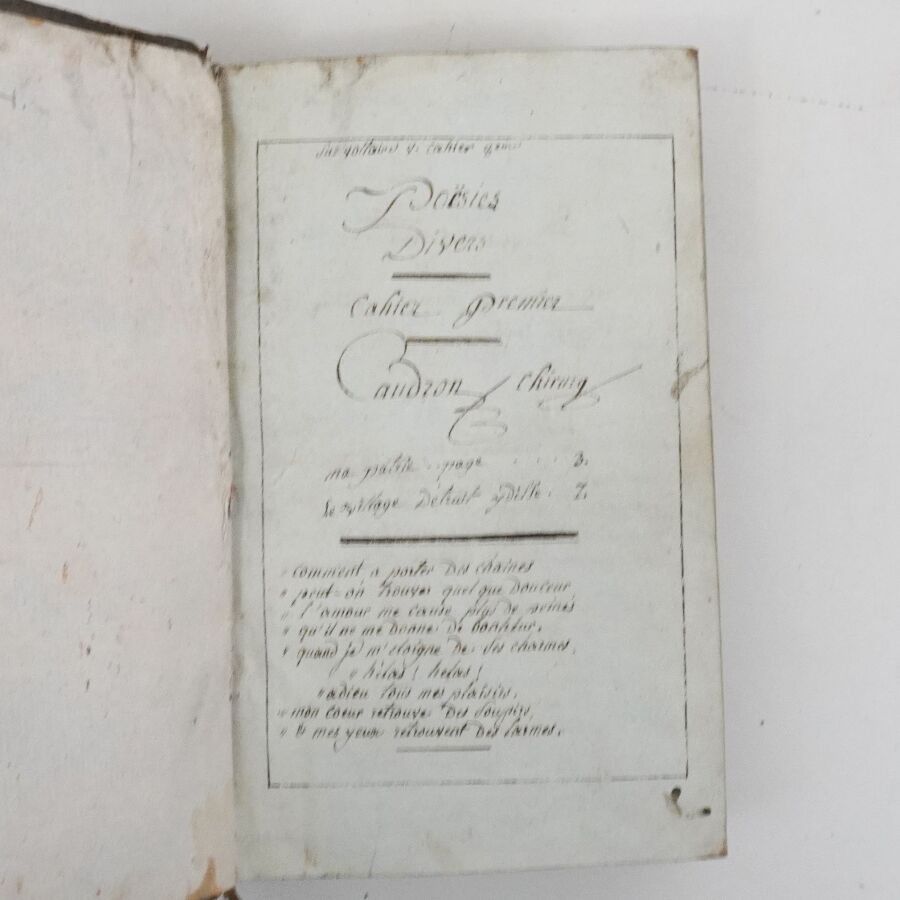 voltaire cahier
Poësies
Divers
Cahier Premier
Caudron Chirurg
ma patrie page 3.
le village Détruit ydille. 7.
" comment a porter Des chaines
" peut-on trouver quelque Douceur
" l'amour me cause plus de peines
" qu'il ne me Donne De bonheur.
" quand je m'eloigne De ses charmes,
" hélas! helas!
" adieu tous mes plaisirs,
" mon coeur retrouve Des Soupirs,
" & mes yeux retrouvent Des larmes.